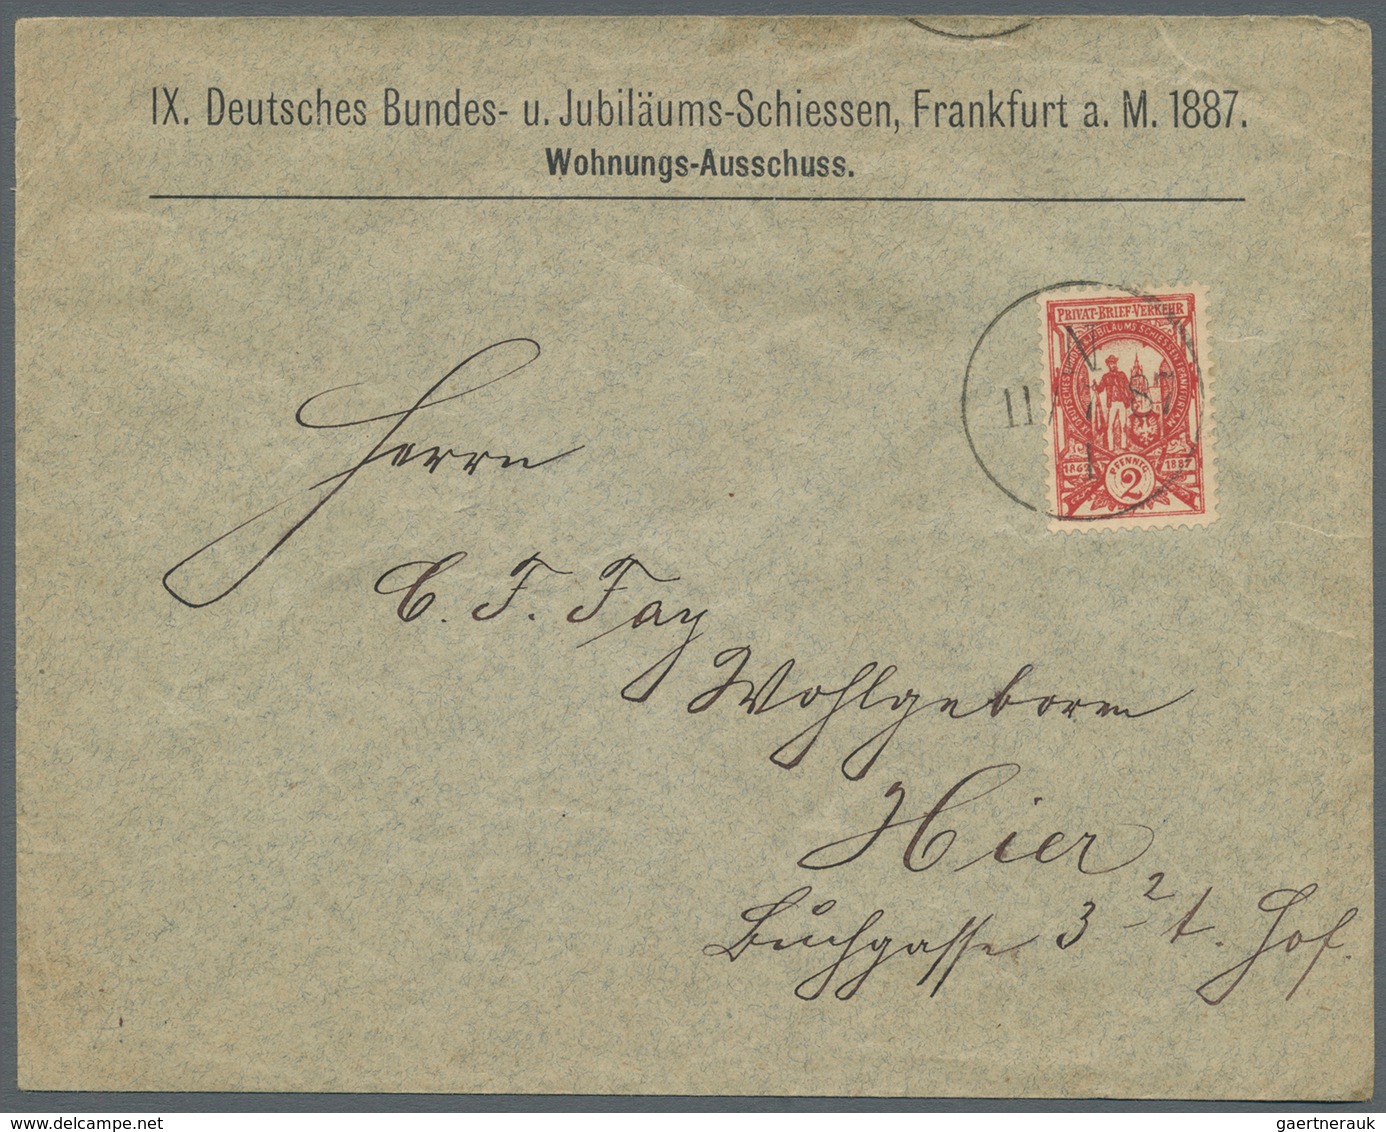 IX. Deutsches Bundes- u. Jubiläums-Schiessen, Frankfurt a. M. 1887.
Wohnungs-Ausschuss.
PRIVAT-BRIEF-VERKEHR
JUBILÄUMS SCHIESSEN FRANKFURT A/M
N
11 7 87
1862 1887
PFENNIG
2
Herrn
C. F. Fay
Wohlgeboren
Hier
Buchgasse 3 2 t. Hof.
www.delcampe.net
gaertnerauk